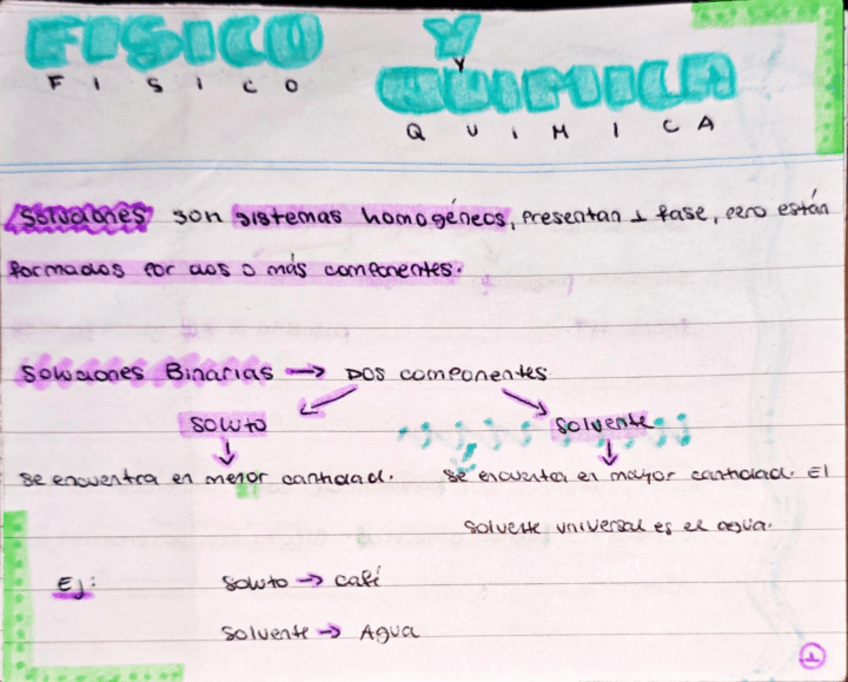 FISICO Y
F I S I C O Y
QUIMICA
Q U I M I C A
Soluciones son sistemas homogéneos, presentan 1 fase, pero están
formados por dos o más componentes.
Soluciones Binarias → Dos componentes
Soluto Solvente
↓ ↓
Se encuentra en menor cantidad. Se encuentra en mayor cantidad. El
solvente universal es el agua.
Ej: Soluto → café
Solvente → Agua
1